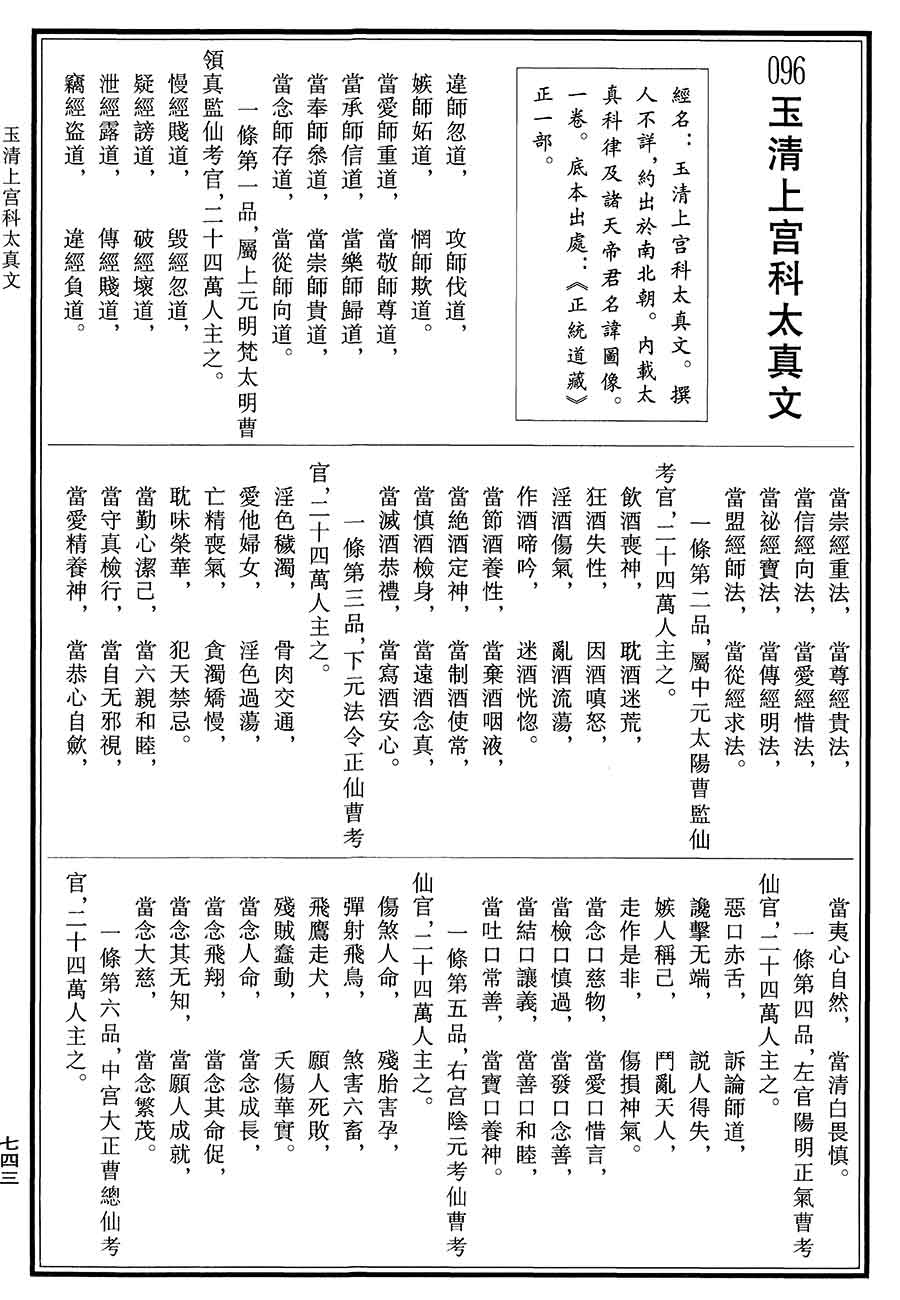 096 玉清上宮科太真文
經名：玉清上宮科太真文。撰
人不詳，約出於南北朝。內載太
真科律及諸天帝君名諱圖像。
一卷。底本出處：《正統道藏》
正一部。
違師忽道，攻師伐道，
嫉師妬道，惘師欺道。
當愛師重道，當敬師尊道，
當承師信道，當樂師歸道，
當奉師叅道，當崇師貴道，
當念師存道，當從師向道。
一條第一品，屬上元明梵太明曹
領真監仙考官，二十四萬人主之。
慢經賤道，毀經忽道，
疑經謗道，破經壞道，
泄經露道，傳經賤道，
竊經盜道，違經負道。
當崇經重法，當尊經貴法，
當信經向法，當愛經惜法，
當祕經寶法，當傳經明法，
當盟經師法，當從經求法。
一條第二品，屬中元太陽曹監仙
考官，二十四萬人主之。
飲酒喪神，耽酒迷荒，
狂酒失性，因酒嗔怒，
淫酒傷氣，亂酒流蕩，
作酒啼吟，迷酒恍惚。
當節酒養性，當棄酒咽液，
當絶酒定神，當制酒使常，
當慎酒檢身，當遠酒念真，
當滅酒恭禮，當寫酒安心。
一條第三品，下元法令正仙曹考
官，二十四萬人主之。
淫色穢濁，骨肉交通，
愛他婦女，淫色過蕩，
亡精喪氣，貪濁矯慢，
耽味榮華，犯天禁忌。
當勤心潔己，當六親和睦，
當守真檢行，當自无邪視，
當愛精養神，當恭心自歛，
當夷心自然，當清白畏慎。
一條第四品，左官陽明正氣曹考
仙官，二十四萬人主之。
惡口赤舌，訴論師道，
讒擊无端，説人得失，
嫉人稱己，鬥亂天人，
走作是非，傷損神氣。
當念口慈物，當愛口惜言，
當檢口慎過，當發口念善，
當結口讓義，當善口和睦，
當吐口常善，當寶口養神。
一條第五品，右宫陰元考仙曹考
仙官，二十四萬人主之。
傷煞人命，殘胎害孕，
彈射飛鳥，煞害六畜，
飛鷹走犬，願人死敗，
殘賊蠢動，夭傷華實。
當念人命，當念成長，
當念飛翔，當念其命促，
當念其无知，當願人成就，
當念大慈，當念繁茂。
一條第六品，中宫大正曹總仙考
官，二十四萬人主之。
玉清上宫科太真文
七四三